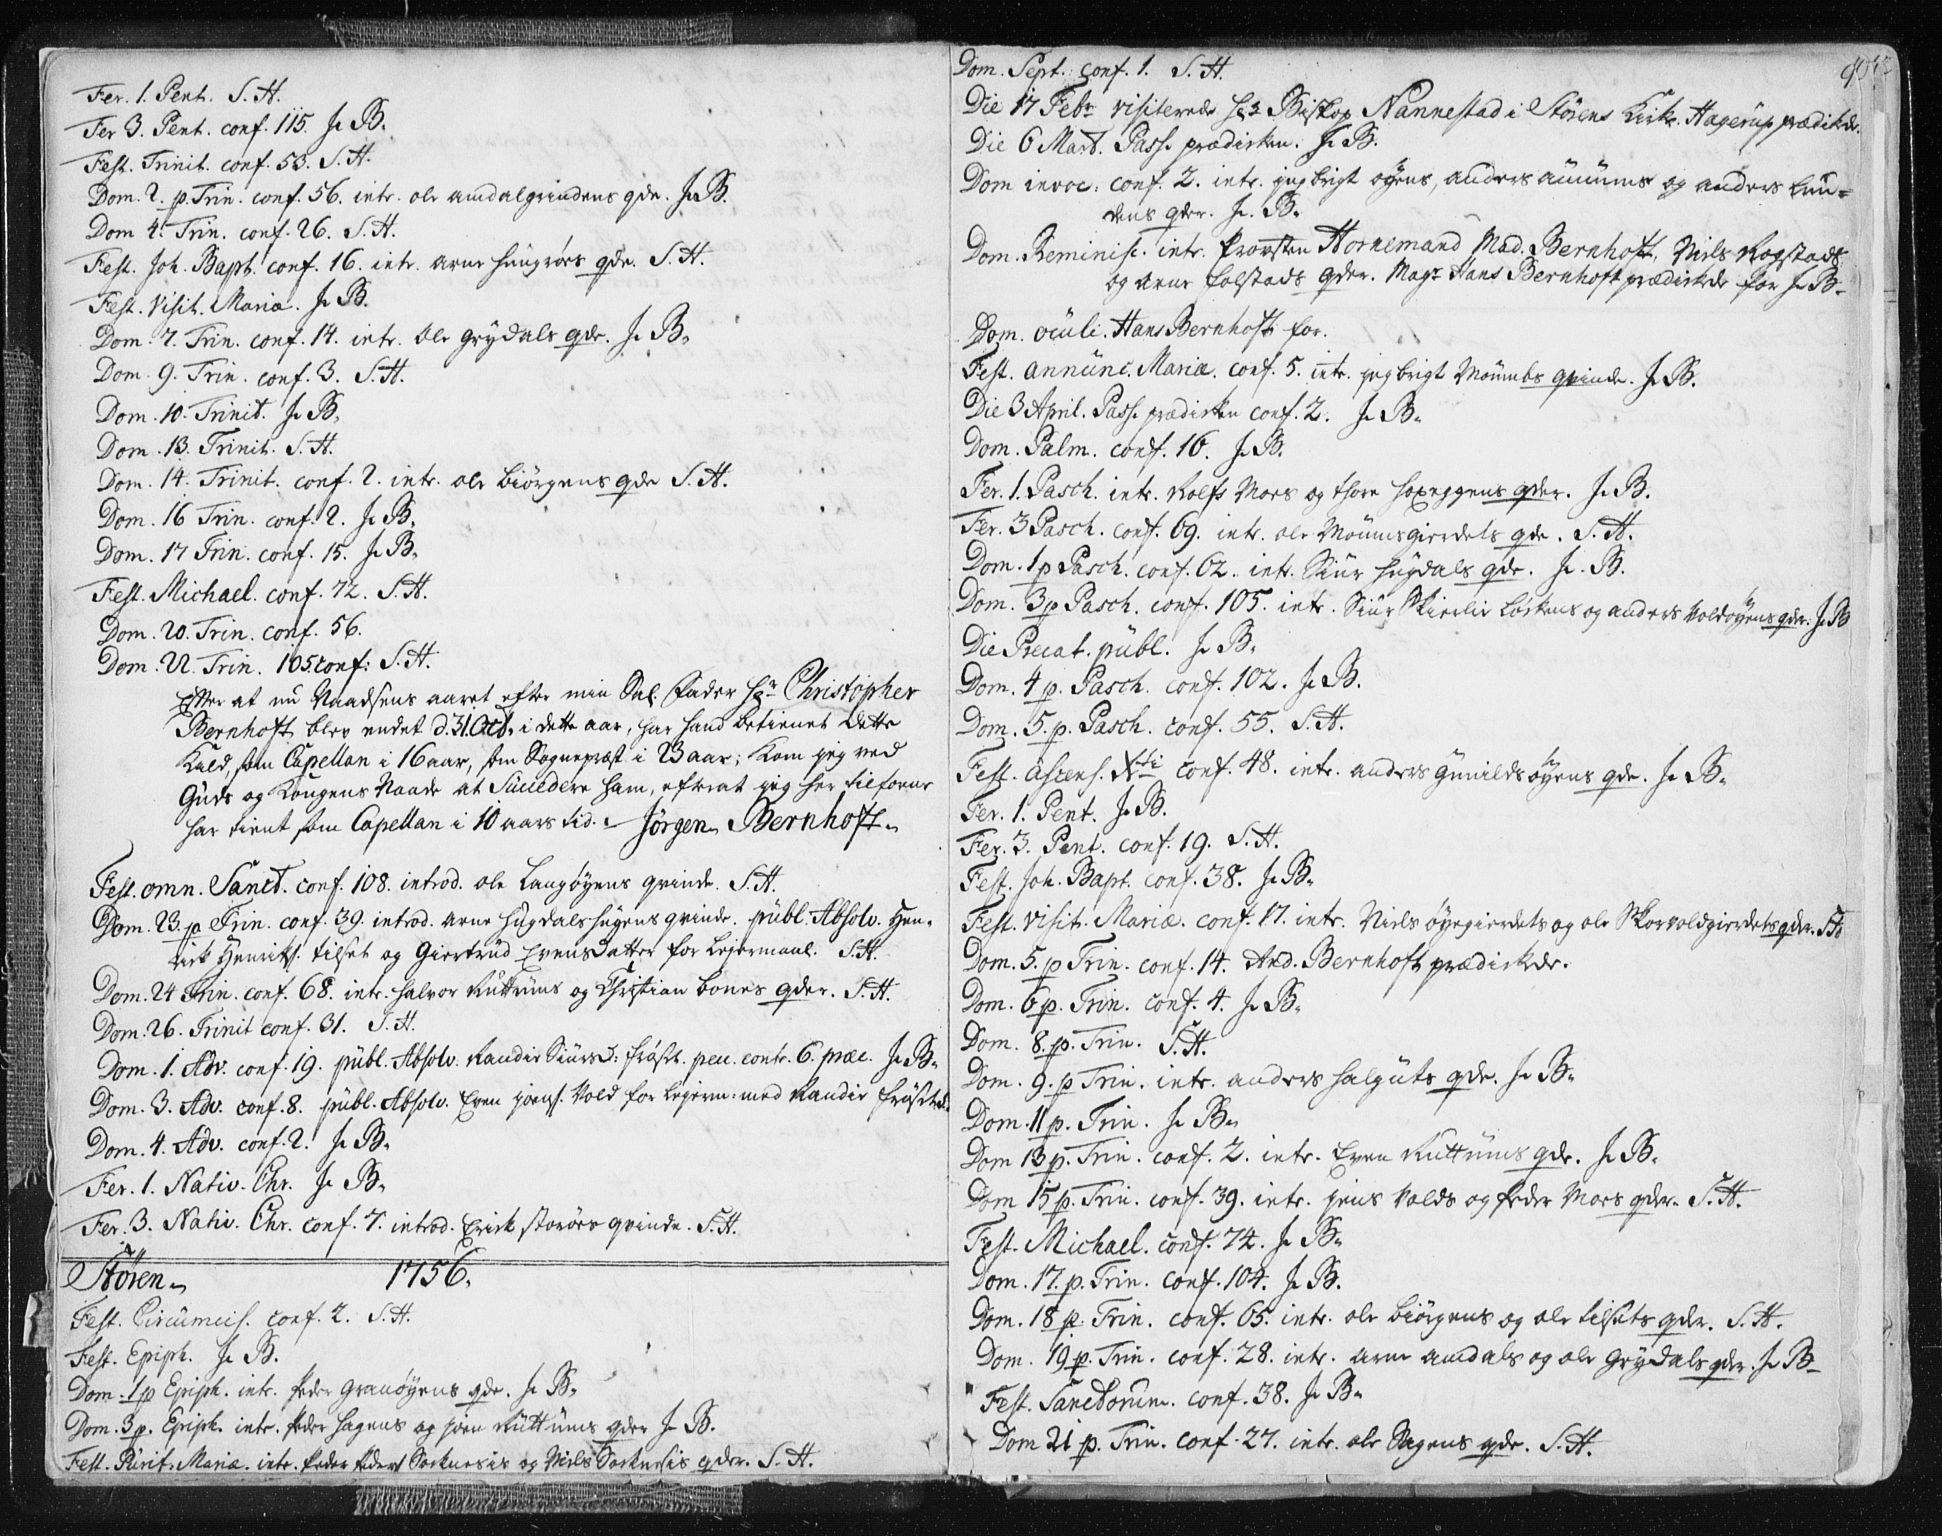 Fer. 1. Pent. S. H.
Fer 3. Pent. conf. 115. J. B.
Fest. Trinit. conf. 53. S. H.
Dom. 2. p. Trin. conf. 56. intr. ole amdalgrindens qde. J. B.
Dom 4. Trin. conf. 26. S. H.
Fest. Joh. Bapt. conf. 16. intr. arne hungrøes qde. S. H.
Fest. Visit. Mariæ. J. B.
Dom. 7. Trin. conf. 14. intr. Ole grydals qde. J. B.
Dom. 9. Trin. conf. 3. S. H.
Dom. 10. Trinit. J. B.
Dom. 13. Trinit. S. H.
Dom. 14. Trinit. conf. 2. intr. ole biörgens qde S. H.
Dom. 16 Trin. conf. 2. J. B.
Dom. 17 Trin. conf. 15. J. B.
Fest. Michael. conf. 72. S. H.
Dom. 20. Trin. conf. 56.
Dom. 22. Trin. 105 conf: S. H.
Efter at nu Naadsens aaret efter min Sal. Fader Hr Christopher
Bernhoft blev endet d. 31. Oct. i dette aar, har hand betienet dette
Kald, som Capellan i 16 aar, som Sognepræst i 23 aar; kom jeg ved
Guds og Kongens Naade at Succedere ham, efterat jeg her tilforne
har tient som Capellan i 10 aars tid. Jörgen Bernhoft.
Fest. omn. Sanct. conf. 108. introd. ole Langöyens qvinde. S. H.
Dom. 23. p Trin. conf. 39. introd. arne hugdalshugens qvinde. publ. Absolv. Hen-
rich Henrichs. tilset og Giertrud EvensDatter for Lejermaal. S. H.
Dom. 24 Trin. conf. 68. intr. halvor Ruttums og Christian bones qder. S. H.
Dom. 26. Trinit conf. 31. S. H.
Dom. 1. Adv. conf. 19. publ. Absolv. Randie Siursd: fröset. pecc. contr. 6. præc. J. B.
Dom. 3. Adv. conf. 8. publ. Absolv. Even joens. Vold for Lejerm: med Randie fröset
Dom. 4. Adv. conf. 2. J. B.
Fer. 1. Nativ. Chr. J. B.
Fer. 3. Nativ. Chr. conf. 7. introd. Erick storöes qvinde. S. H.
Stören. 1756.
Fest. Circumcis. conf. 2. S. H.
Fest. Epiph. J. B.
Dom. 1 p Epiph. intr. Peder granöyens qde. J. B.
Dom. 3 p. Epiph. intr. Peder hagens og joen Ruttums qder J. B.
Fest. Purif. Mariæ. intr. Peder Peders Soknesis og Niels Soknesis qder. S. H.
Dom. Sept. conf. 1. S. H.
Die 17 Febr visiterede Hr Biskop Nannestad i Störens Kirke. Hagerup prædikede.
Die 6 Mart. Pass. prædicken. J. B.
Dom invoc: conf. 2. intr. ingbrigt öyens, anders aunums og anders Lun-
dens qder. J. B.
Dom. Reminisc. intr. Provsten Hornemand Mad. Bernhoft, Niels Rogstads
og arne folstads qder. Magr Hans Bernhoft prædickede for J. B.
Dom. oculi. Hans Bernhoft for.
Fest. annunc. Mariæ. conf. 5. intr. ingbrigt Moumbs qvinde. J. B.
Die 3 April. Pass. prædicken conf. 2. J. B.
Dom. Palm. conf. 16. J. B.
Fer. 1. Pasch. intr. Rolfs Moes og thore hoxeggens qder. J. B.
Fer. 3 Pasch. conf. 69. intr. ole Moumsgierdets qde. S. H.
Dom. 1 p Pasch. conf. 62. intr. Siur hugdals qde. J. B.
Dom. 3 p Pasch. conf. 105. intr. Siur Skierlie Løckens og anders Voldöyens qder. J. B
Die Precat. publ. J. B.
Dom. 4 p. Pasch. conf. 102. J. B.
Dom. 5. p. Pasch. conf. 55. S. H.
Fest. ascens. Xti conf. 48. intr. anders gunilds öyens qde. J. B.
Fer. 1. Pent. J. B.
Fer. 3. Pent. conf. 19. S. H.
Fest. Joh. Bapt. conf. 38. J. B.
Fest. visit. Mariæ. conf. 17. intr. Niels öyegierdets og ole Skorvoldgierdets qder. S. H.
Dom. 5. p Trin. conf. 14. And. Bernhoft prædickede.
Dom. 6 p. Trin. conf. 4. J. B.
Dom. 8. p. Trin. S. H.
Dom. 9. p Trin. intr. anders halguts qde. J. B.
Dom. 11 p. Trin. J. B.
Dom 13 p. Trin. conf. 2. intr. Even Ruttums qde. J. B.
Dom 15 p. Trin. conf. 39. intr. jens Volds og Peder Moes qder. S. H.
Fest. Michael. conf. 74. J. B.
Dom. 17. p. Trin. conf. 104. J. B.
Dom. 18 p. Trin. conf. 65. intr. ole biörgens og ole tilsets qder. S. H.
Dom. 19 p. Trin. conf. 28. intr. arne amdals og ole grydals qder. J. B
Fest. Sanctorum. conf. 38. J. B.
Dom 21 p. Trin. conf. 27. intr. ole Vagens qde. S. H.